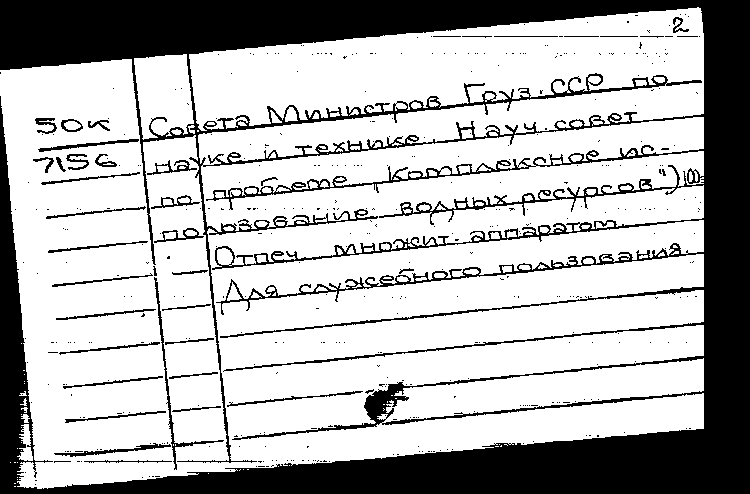 2
50к Совета Министров Груз. ССР по
7156 науке и технике. Науч. совет
по проблеме „Комплексное ис-
пользование водных ресурсов")
Отпеч. множит. аппаратом.
Для служебного пользования.